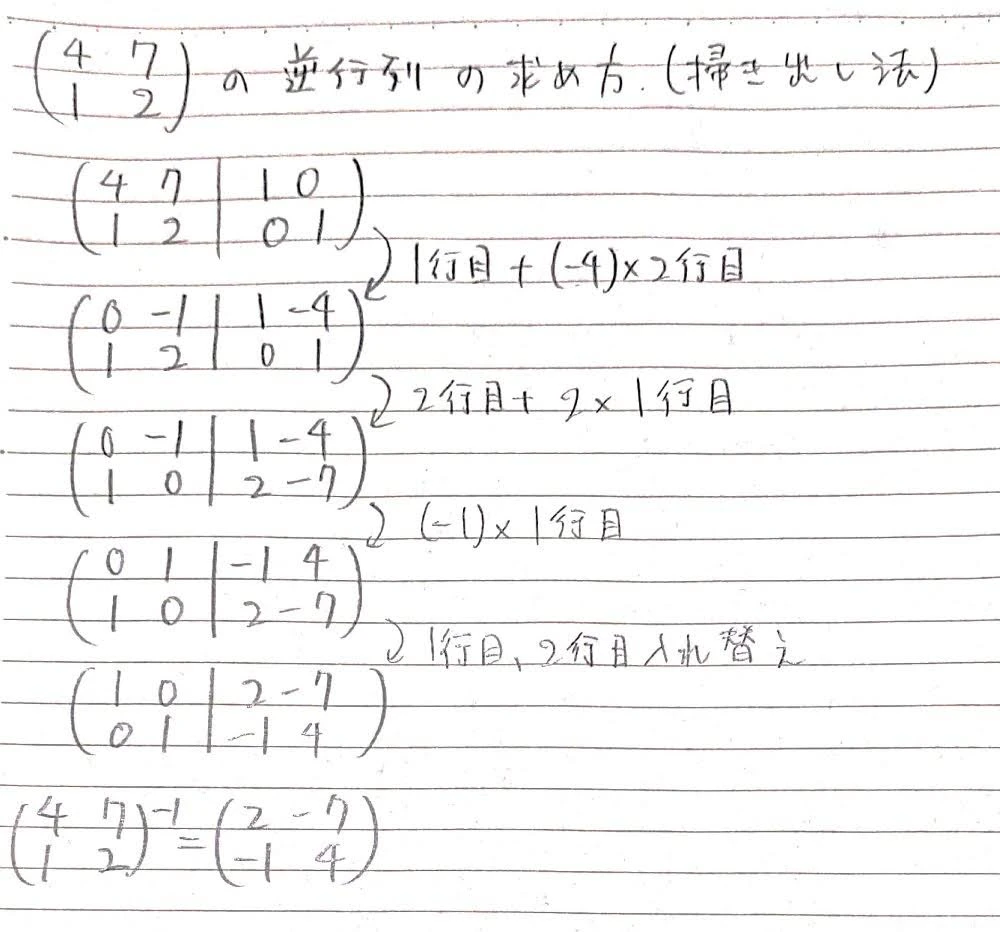 (4 7
1 2) の逆行列の求め方.(掃き出し法)
(4 7 | 1 0
1 2 | 0 1)
1行目 + (-4)×2行目
(0 -1 | 1 -4
1 2 | 0 1)
2行目 + 2×1行目
(0 -1 | 1 -4
1 0 | 2 -7)
(-1)×1行目
(0 1 | -1 4
1 0 | 2 -7)
1行目、2行目入れ替え
(1 0 | 2 -7
0 1 | -1 4)
(4 7
1 2)^-1 = (2 -7
-1 4)